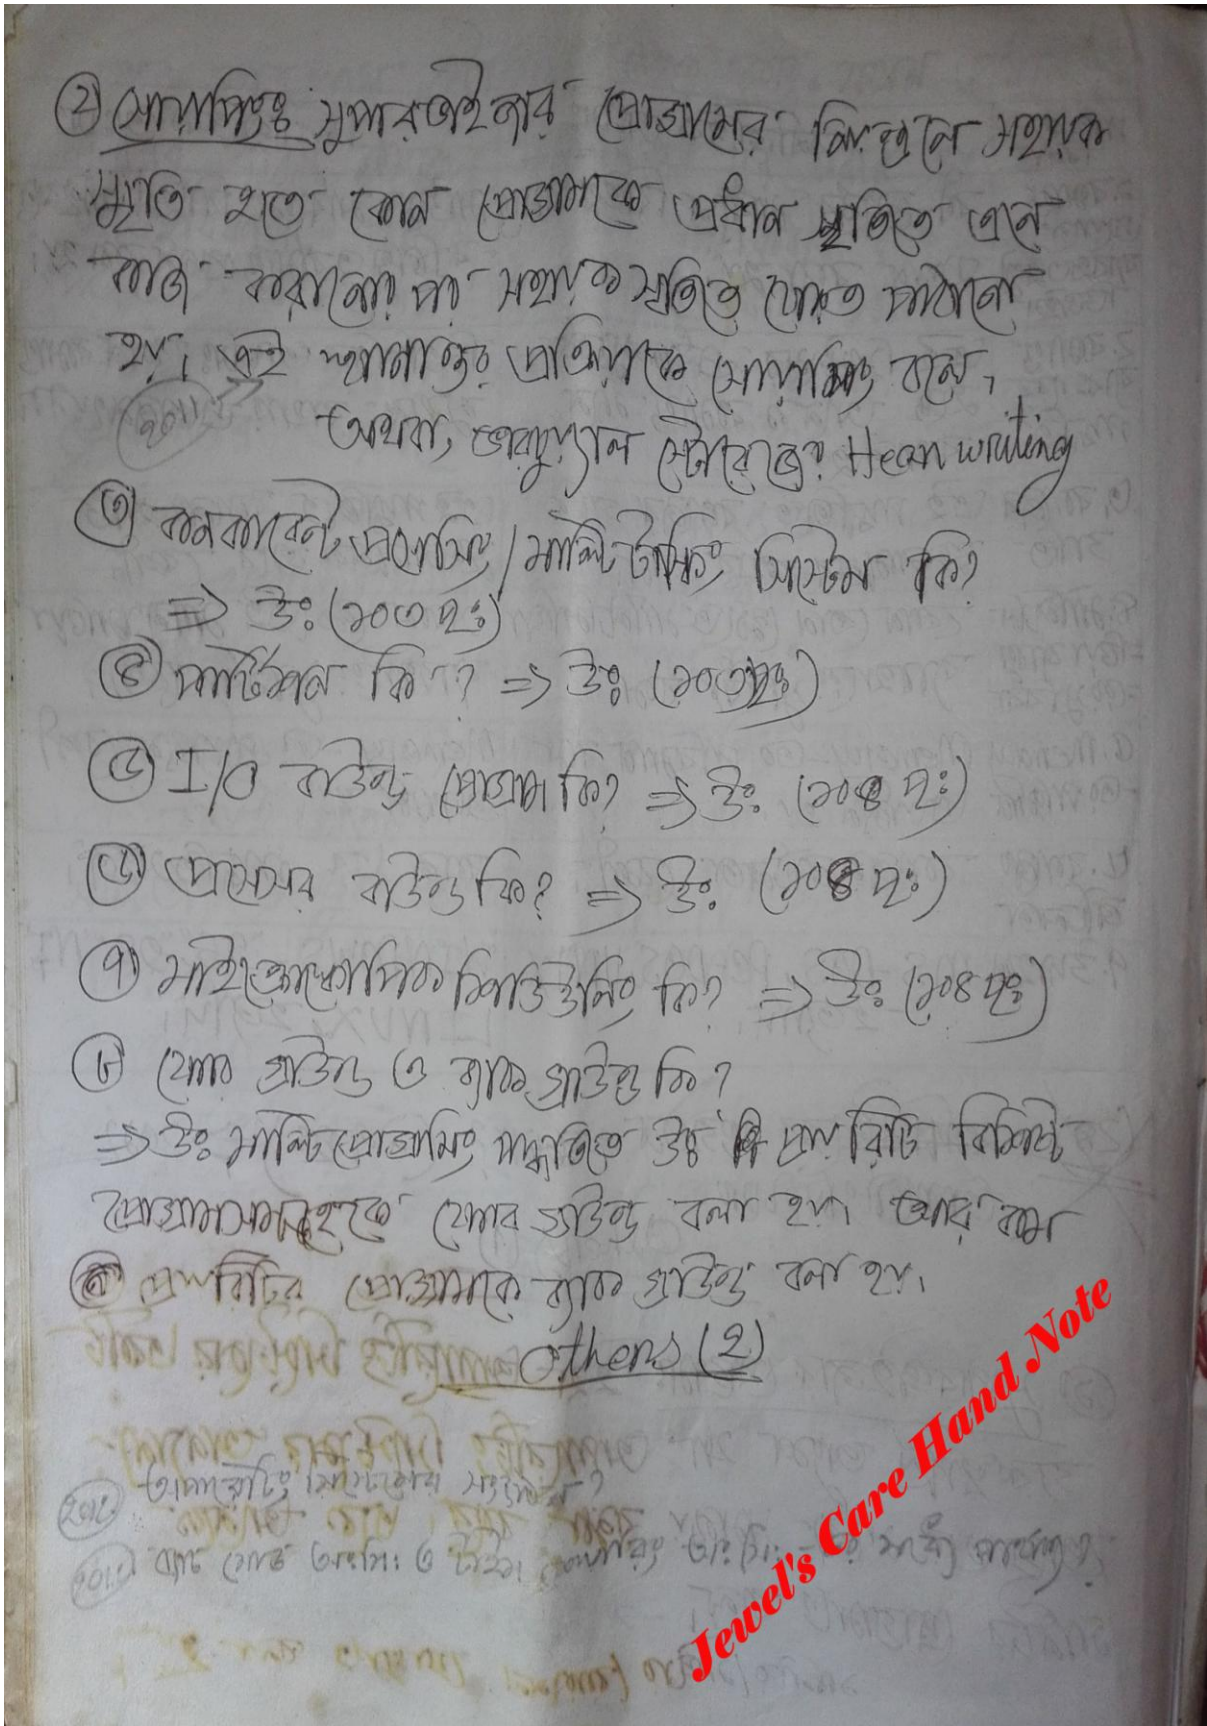 ২) সোয়াপিংঃ সুপারভাইজার প্রোগ্রামের নিয়ন্ত্রনে সহায়ক
স্মৃতি হতে কোন প্রোগ্রামকে প্রধান স্মৃতিতে এনে
কাজ করানোর পর সহায়ক স্মৃতিতে ফেরত পাঠানো
হয়। এই স্থানান্তর প্রক্রিয়াকে সোয়াপিং বলে।
অথবা, ভারচুয়াল স্টোরেজের writing
৩) কনকারেন্ট প্রসেসিং/মাল্টিটাস্কিং সিস্টেম কি?
=> উঃ (১০৩ পৃঃ)
৪) পার্টিশন কি? => উঃ (১০৩ পৃঃ)
৫) I/O বাউন্ড প্রোগ্রাম কি? => উঃ (১০৪ পৃঃ)
৬) প্রসেসর বাউন্ড কি? => উঃ (১০৪ পৃঃ)
৭) মাইক্রোস্কোপিক শিডিউলিং কি? => উঃ (১০৪ পৃঃ)
৮) ফোর গ্রাউন্ড ও ব্যাক গ্রাউন্ড কি?
=> উঃ মাল্টিপ্রোগ্রামিং পদ্ধতিতে উচ্চ প্রায়রিটি বিশিষ্ট
প্রোগ্রামসমূহকে ফোর গ্রাউন্ড বলা হয়। আর কম
প্রায়রিটির প্রোগ্রামকে ব্যাক গ্রাউন্ড বলা হয়।
Others (২)
অপারেটিং সিস্টেমের
ও টাইম শেয়ারিং
Jewel's Care Hand Note